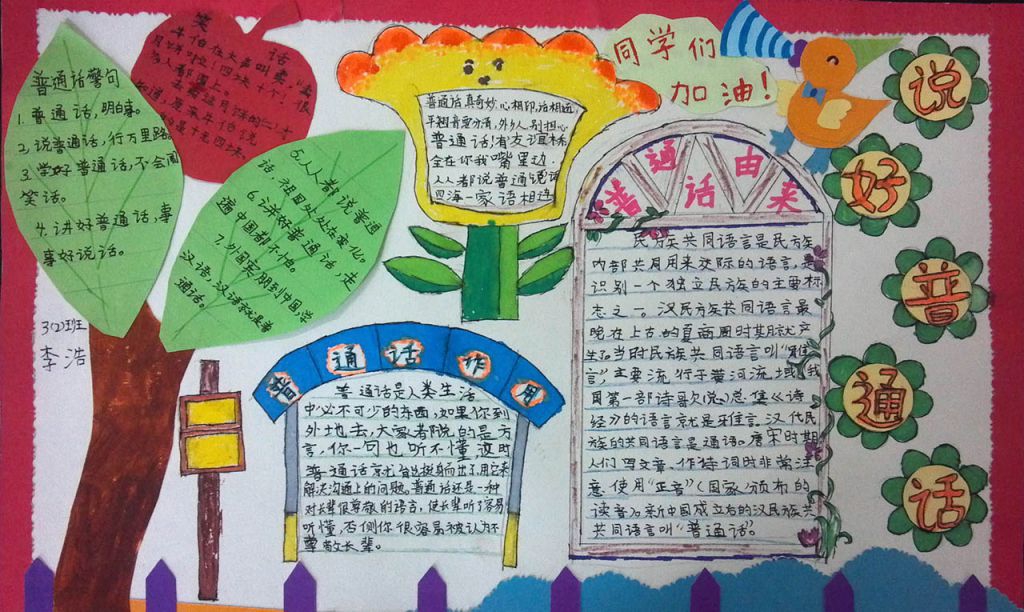 普通话警句
1. 普通话,明白事。
2. 说普通话,行万里路
3. 学好普通话,不会闹
笑话。
4. 讲好普通话,事
事好说话。
笑 话
5. 人人都说普通
话,祖国处处在变化。
6. 讲好普通话,走
遍中国都不怕。
7. 外国宾朋到中国,学
汉语,汉语就是普
通话。
302班
李浩
普通话真奇妙,心相印,话相近,
平翘音要分清,外乡人别担心
普通话!有友谊桥
全在你我嘴里边.
人人都说普通话
四海一家语相连
同学们
加油!
普通话作用
普通话是人类生活
中必不可少的东西,如果你到
外地去,大家都说的是方
言,你一句也听不懂,这时
普通话就自然挺身而出了,用它来
解决沟通上的问题。普通话还是一种
对长辈很尊敬的语言,使长辈听了容易
听懂,否侧你很容易被认为不
尊敬长辈。
普通话由来
民族共同语言是民族
内部共用用来交际的语言,是
识别一个独立民族的主要标
志之一。汉民族共同语言最
晚在上古的夏商周时期就产
生了,当时民族共同语言叫“雅
言”,主要流行于黄河流域,我
国第一部诗歌总集《诗
经》的语言就是雅言。汉代民
族的共同语言是通语。唐宋时期
人们写文章、作诗词时非常注
意使用“正音”(国家颁布的
读音)。新中国成立后的汉民族共
共同语言叫“普通话”。
说
好
普
通
话